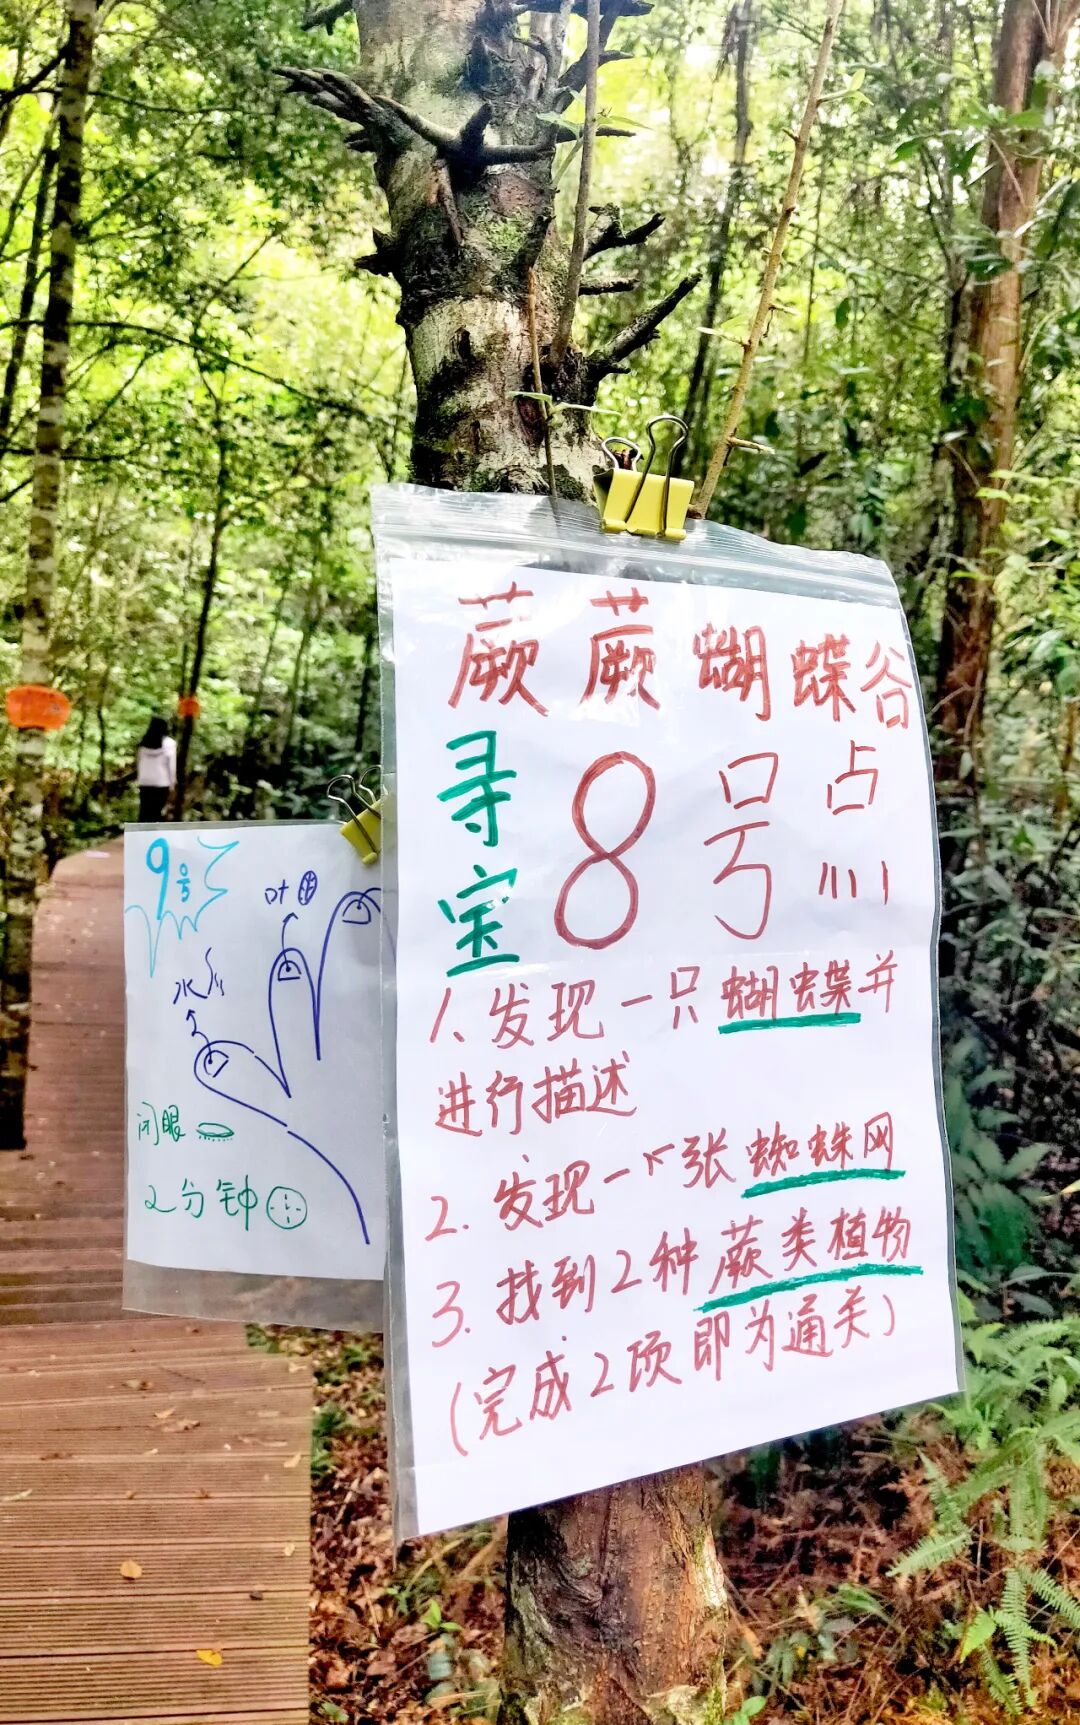 蕨蕨蝴蝶谷
寻宝
8号点
1、发现一只蝴蝶并
进行描述
2. 发现一个张蜘蛛网
3. 找到2种蕨类植物
(完成2项即为通关)
9号
叶
水
闭眼
2分钟